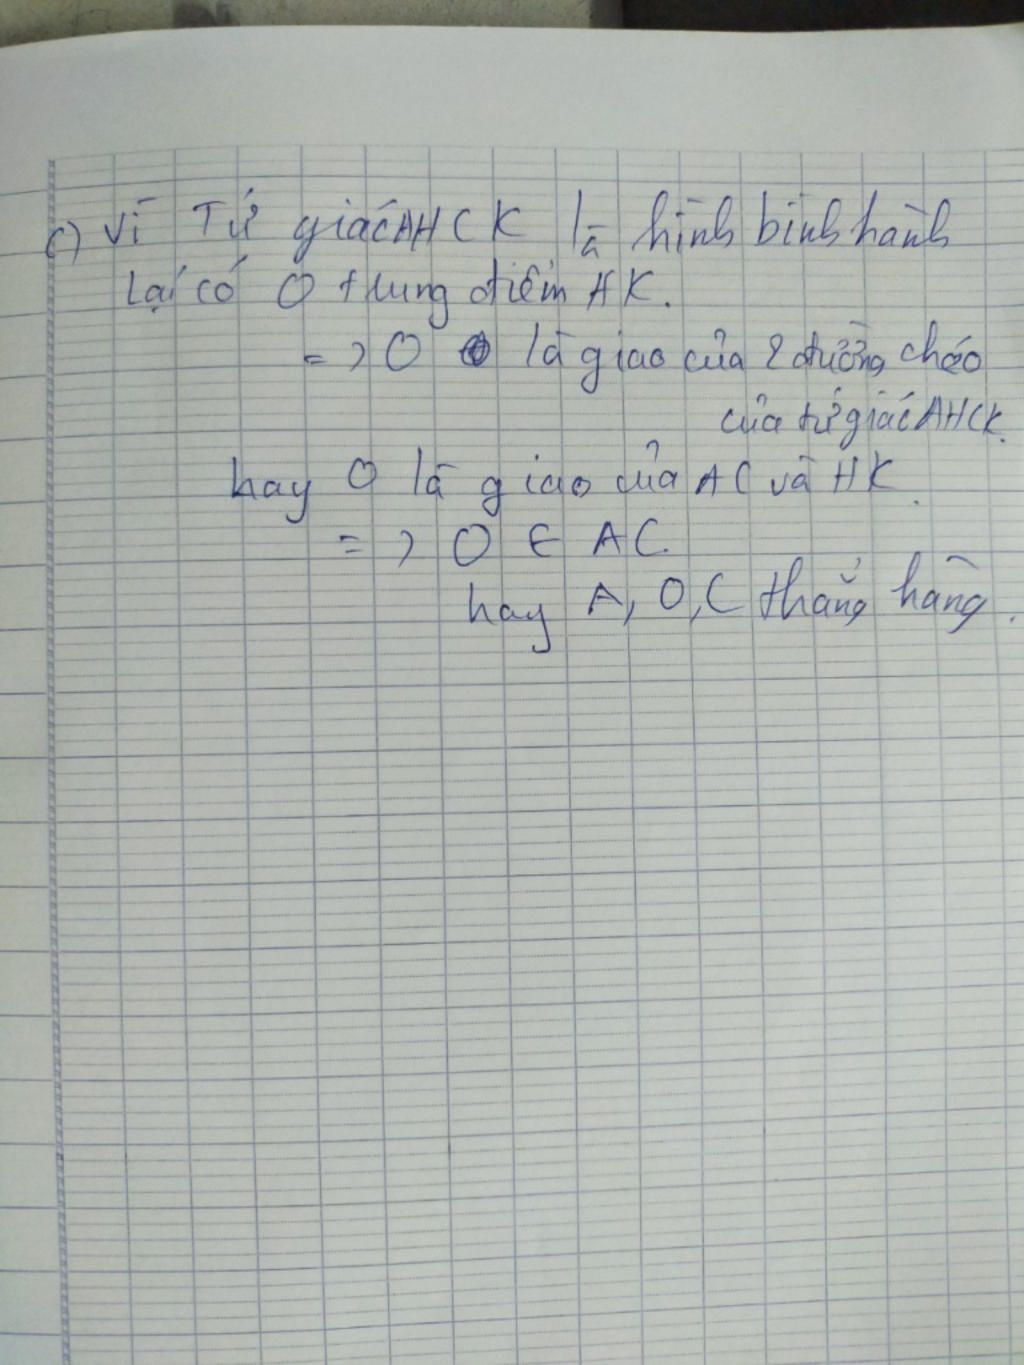 c) Vì Tứ giác AHCK là hình bình hành
Lại có O trung điểm HK.
=> O là giao của 2 đường chéo
của tứ giác AHCK.
hay O là giao của AC và HK.
=> O ∈ AC.
hay A, O, C thẳng hàng.